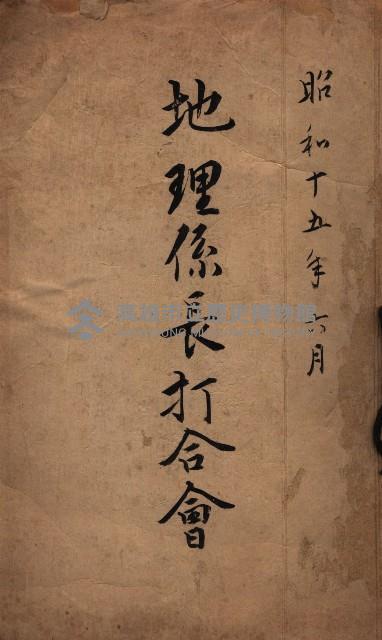 昭和十五年六月
地理係長打合會
高雄市立歷史博物館
KAOHSIUNG MUSEUM OF HISTORY